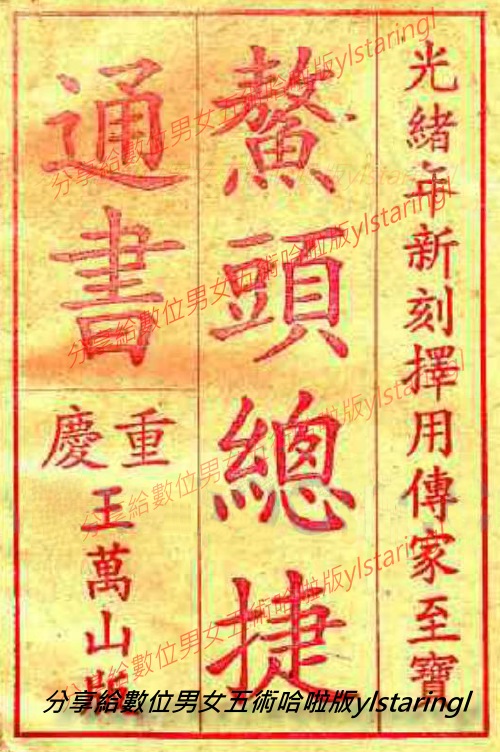 光緒年新刻擇用傳家至寶
鰲頭總捷
通書
重慶
王萬山版
分享給數位男女五術哈啦版ylstaringl
分享給數位男女五術哈啦版ylstaringl
分享給數位男女五術哈啦版ylstaringl
分享給數位男女五術哈啦版ylstaringl
分享給數位男女五術哈啦版ylstaringl